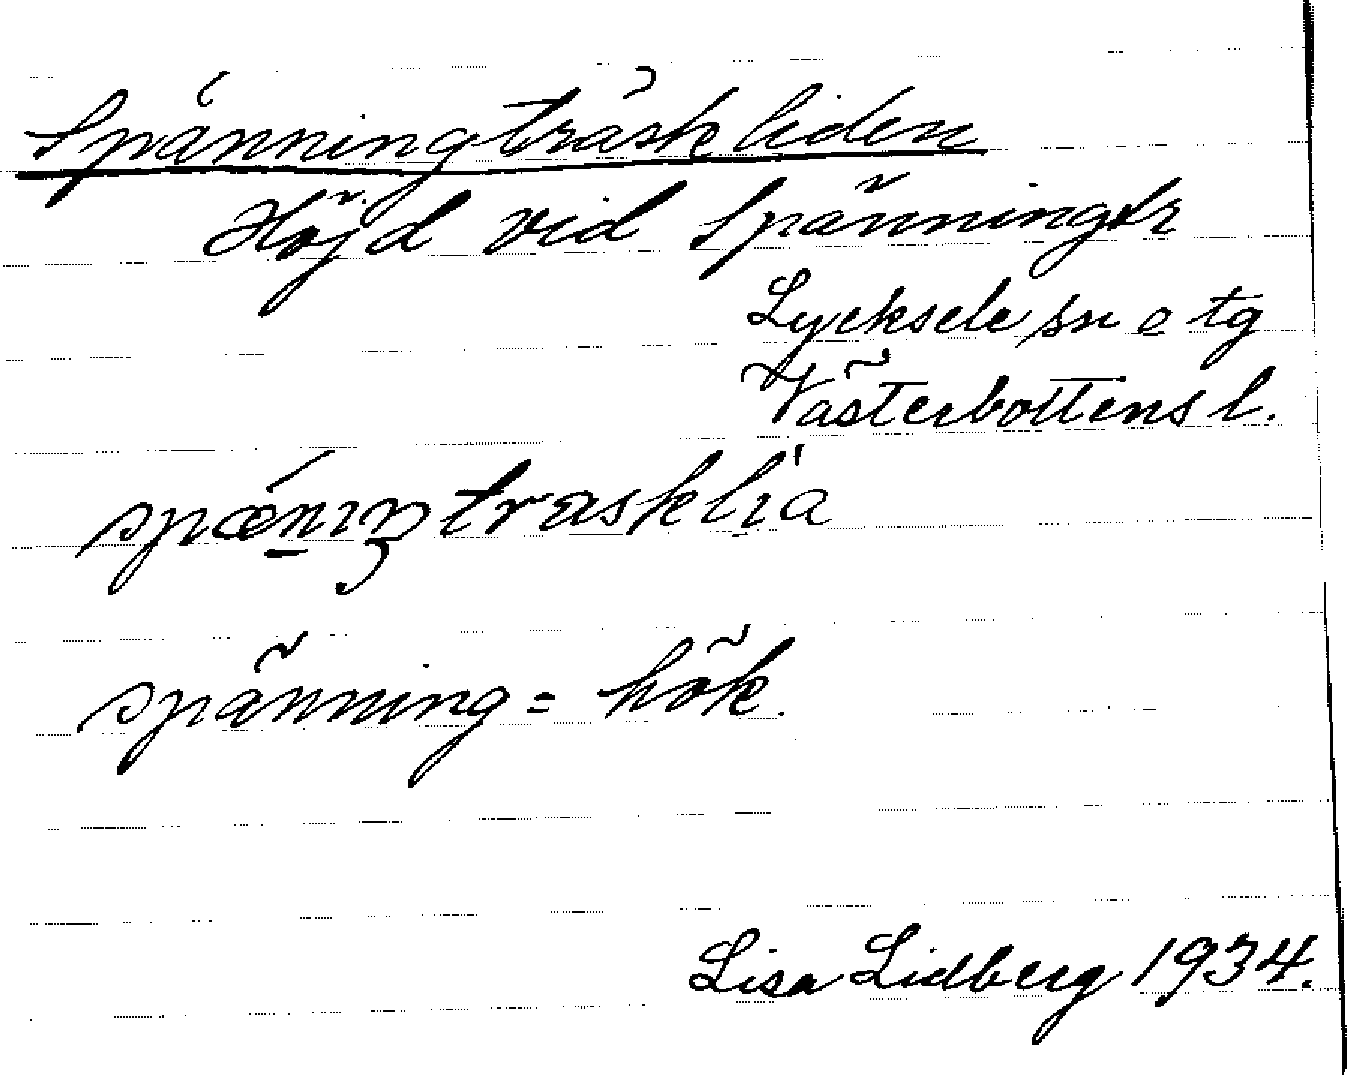 Spänningträskliden
Höjd vid Spänningtr
Lycksele sn o tg
Västerbottens l.
spǽniŋtraskli̇a
spänning = hök.
Lisa Lidberg 1934.